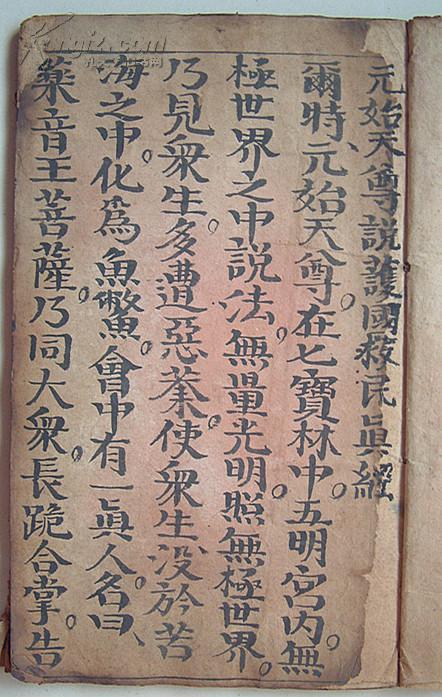 元始天尊說護國救民眞經
爾時、元始天尊。在七寶林中。五明宮內。無
極世界之中說法。無量光明照無極世界。
乃見衆生。多遭惡業。使衆生沒於苦
海之中。化爲魚鱉。會中有一眞人。名曰、
藥音王菩薩。乃同大衆。長跪合掌。告